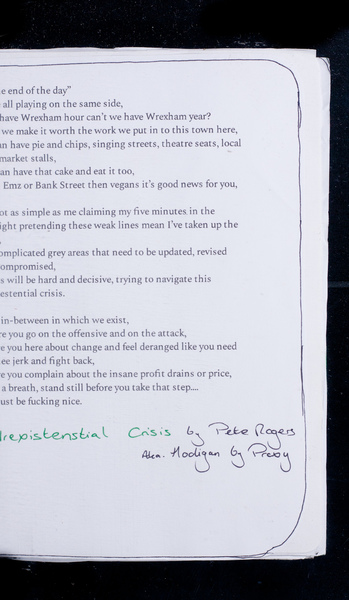 e end of the day"
all playing on the same side,
have Wrexham hour can't we have Wrexham year?
we make it worth the work we put in to this town here,
n have pie and chips, singing streets, theatre seats, local
market stalls,
an have that cake and eat it too,
Emz or Bank Street then vegans it's good news for you,
ot as simple as me claiming my five minutes in the
ight pretending these weak lines mean I've taken up the
omplicated grey areas that need to be updated, revised
ompromised,
s will be hard and decisive, trying to navigate this
estential crisis.
in-between in which we exist,
re you go on the offensive and on the attack,
e you here about change and feel deranged like you need
ee jerk and fight back,
e you complain about the insane profit drains or price,
a breath, stand still before you take that step....
ust be fucking nice.
rexistenstial Crisis by Pete Rogers
Aka. Hooligan by Proxy